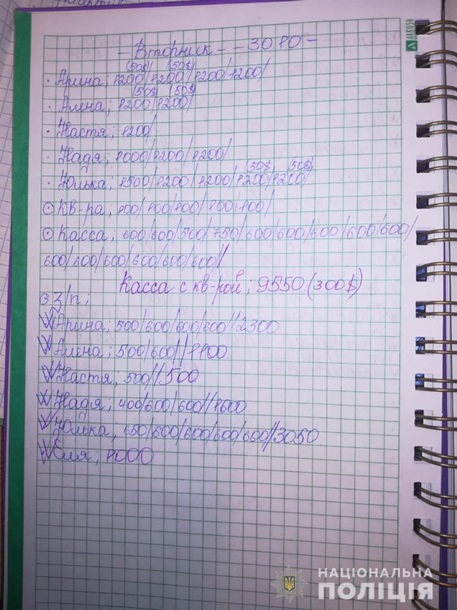 - Вторник - -3010-
(50$) (50$)
· Арина; 1200/1200/1200/1200/
(50$) (50$)
· Алена; 1200/1200/
· Настя; 1200/
· Надя; 1000/1200/1200/
(50$) (50$)
· Юлька; 1500/1200/1200/1200/1200/
⊙ Кв-ра, 100/100/100/100/100/
⊙ Касса; 600/600/500/750/600/600/600/600/600/
600/600/600/600/600/600//
Касса с кв-рой; 9550 (300$)
З/п;
Арина; 500/600/600/600//2300
Алена; 500/600//1100
Настя, 500//500
Надя, 400/600/600//1600
Юлька, 650/600/600/600/600//3050
Эля, 1000
НАЦІОНАЛЬНА
ПОЛІЦІЯ